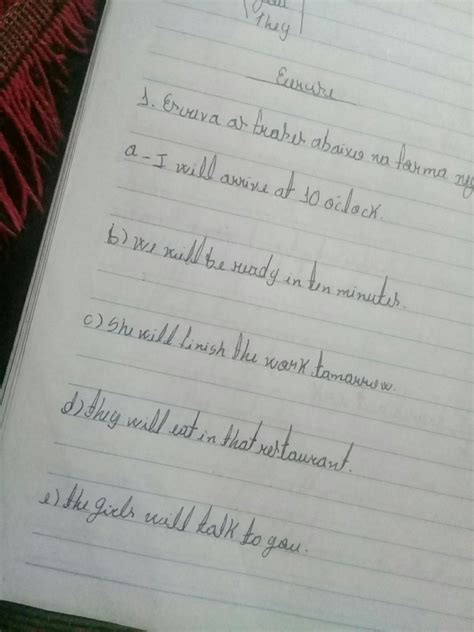 They
1. Escreva as frases abaixo na forma
a - I will arrive at 10 o'clock.
b) we will be ready in ten minutes.
c) she will finish the work tomorrow.
d) they will eat in that restaurant.
e) the girls will talk to you.